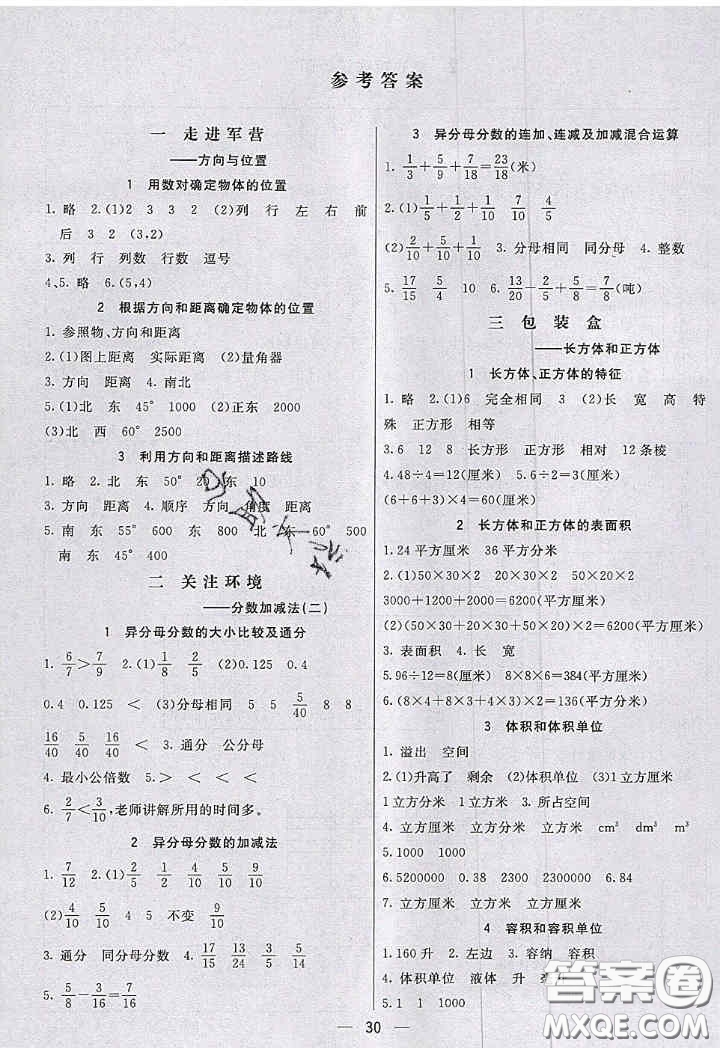 参考答案
一 走进军营
——方向与位置
1 用数对确定物体的位置
1. 略 2. (1)2 3 3 2 (2)列 行 左 右 前
后 3 2 (3,2)
3. 列 行 列数 行数 逗号
4、5. 略 6. (5,4)
2 根据方向和距离确定物体的位置
1. 参照物、方向和距离
2. (1)图上距离 实际距离 (2)量角器
3. 方向 距离 4. 南北
5. (1)北 东 45° 1000 (2)正东 2000
(3)北 西 60° 2500
3 利用方向和距离描述路线
1. 略 2. 北 东 50° 20 东 10
3. 方向 距离 4. 顺序 方向 角度 距离
5. 南 东 55° 600 东 800 北 东 60° 500
南 东 20° 400
二 关注环境
——分数加减法(二)
1 异分母分数的大小比较及通分
1. 6/7>7/9 2. (1)1/8 2/5 (2)0.125 0.4
0.4 0.125 < < (3)分母相同 5 5 5/40 8 8
16/40 16/40 5/40 < < 3. 通分 公分母
4. 最小公倍数 5. > < < <
6. 2/7<3/10, 老师讲解所用的时间多。
2 异分母分数的加减法
1. 7/12 2. (1)2/10 5/10 2/10 4/10
(2)4/10 5/10 4 5 不变 9/10
3. 通分 同分母分数 4. 17/15 13/24 2/15 5/14
5. 5/8-3/16=7/16
3 异分母分数的连加、连减及加减混合运算
1. 1/3+5/9+7/18=23/18(米)
2. (1)1/5+1/2+1/10 7/10 4/5
(2)1/10+1/2 3. 分母相同 同分母 4. 整数
5. 17/15 5/4 10 6. 13/20-1/2+5/8=7/8(吨)
三 包装盒
——长方体和正方体
1 长方体、正方体的特征
1. 略 2. (1)6 完全相同 3 (2)长 宽 高 特
殊 正方形 相等
3. 6 12 8 长方形 正方形 相对 12条棱
4. 48÷4=12(厘米) 5. 6÷2=3(厘米)
(6+6+3)×4=60(厘米)
2 长方体和正方体的表面积
1. 24平方厘米 36平方分米
2. (1)50×30×2 20×30×2 50×20×2
3000+1200+2000=6200(平方厘米)
(2)(50×30+20×30+50×20)×2=6200(平方厘米)
3. 表面积 4. 长 宽
5. 96÷12=8(厘米) 8×8×6=384(平方厘米)
6. (8×4+8×3+4×3)×2=136(平方分米)
3 体积和体积单位
1. 溢出 空间
2. (1)升高了 剩余 (2)体积单位 (3)1立方厘米
1立方分米 1立方米 3. 所占空间
4. 立方厘米 立方分米 立方米 cm³ dm³ m³
5. 1000 1000
6. 5200000 0.38 2300 2300000 6.84
7. 立方厘米 立方分米 立方米
4 容积和容积单位
1. 160升 2. 左边 3. 容纳 容积
4. 体积单位 液体 升 毫升
5. 1 1 1000
30
答案圈
MXQE.COM